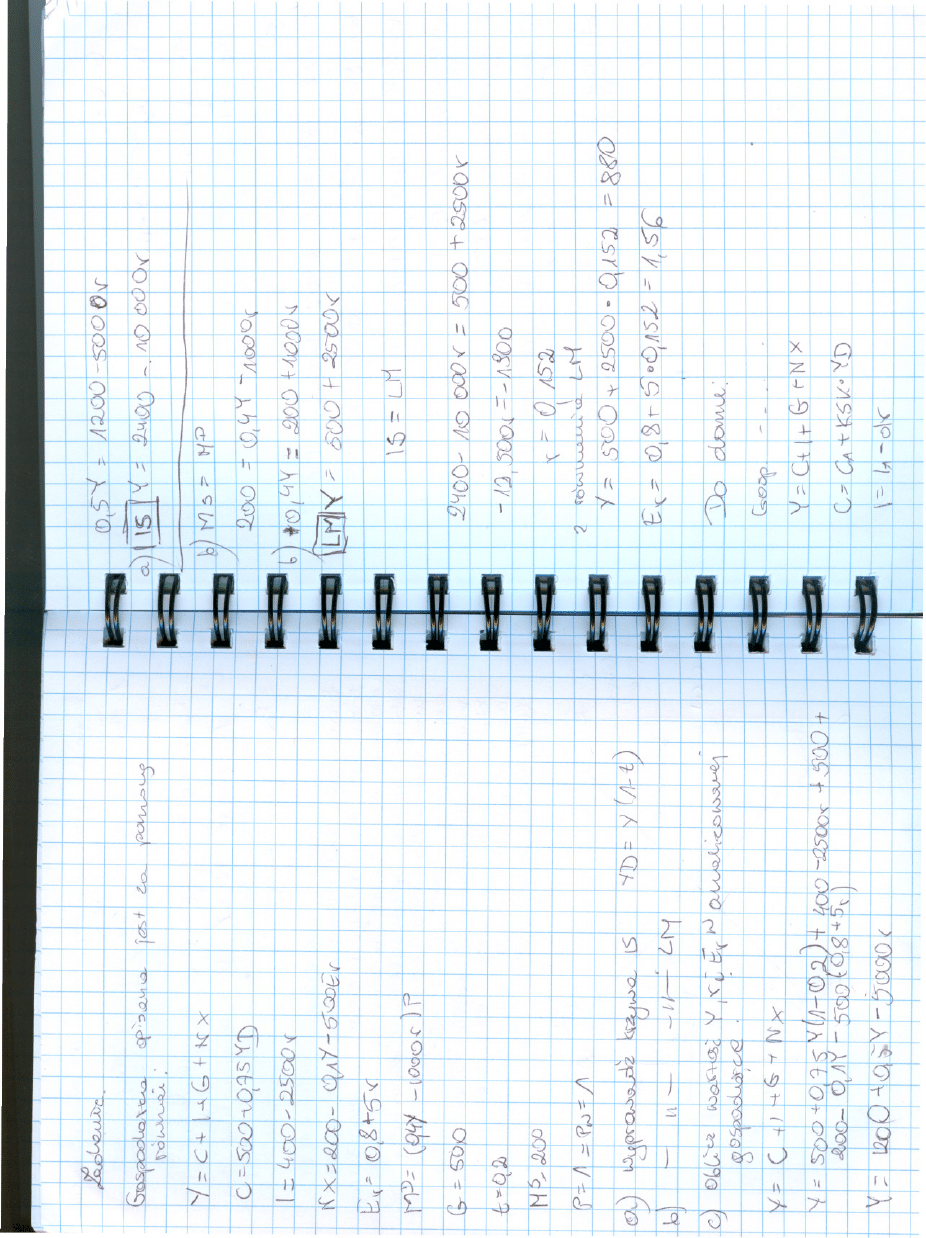 Zadanie.
Gospodarka opisana jest za pomocą
równań:
Y = C + I + G + NX
C = 500 + 0,75YD
I = 400 - 2500r
NX = 200 - 0,1Y - 500Er
Er = 0,8 + 5r
M^D = (0,4Y - 1000r)P
G = 500
t = 0,2
M^S = 200
P = 1 = PN = 1
a) Wyprowadź krzywą IS YD = Y(1-t)
b) — 11 — -11- LM
c) Oblicz wartość Y, r i Er w analizowanej
gospodarce.
Y = C + I + G + NX
Y = 500 + 0,75Y(1-0,2) + 400 - 2500r + 500 +
200 - 0,1Y - 500(0,8+5r)
Y = 1200 + 0,5Y - 5000r
0,5Y = 1200 - 5000r
a) IS Y = 2400 - 10 000r
b) Ms = M^D
200 = 0,4Y - 1000r
b) 0,4Y = 200 + 1000r
LM Y = 500 + 2500r
IS = LM
2400 - 10 000r = 500 + 2500r
-12,500r = -1900
r = 0,152
z równania LM
Y = 500 + 2500 · 0,152 = 880
Er = 0,8 + 5 · 0,152 = 1,56
Do domu:
Gosp ...
Y = C + I + G + NX
C = CA + KSK · YD
I = IA - dr